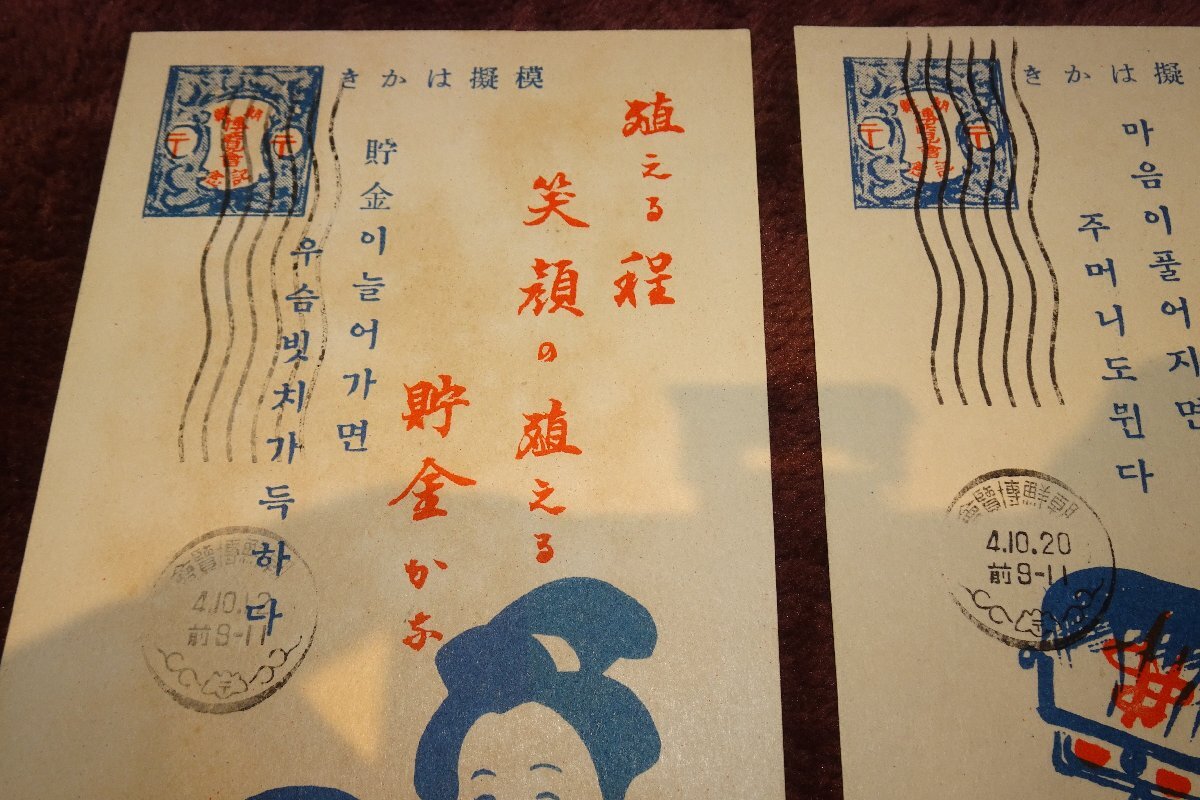 模擬はかき
朝鮮
博覽會
記念
〒 〒
殖える程
笑顔の殖える
貯金かな
貯金이늘어가면
우슴빗치가득하다
前9-11
擬はかき
朝鮮
博覽會
記念
〒 〒
마음이풀어지면
주머니도뷘다
朝鮮博覽會
4.10.20
前9-11